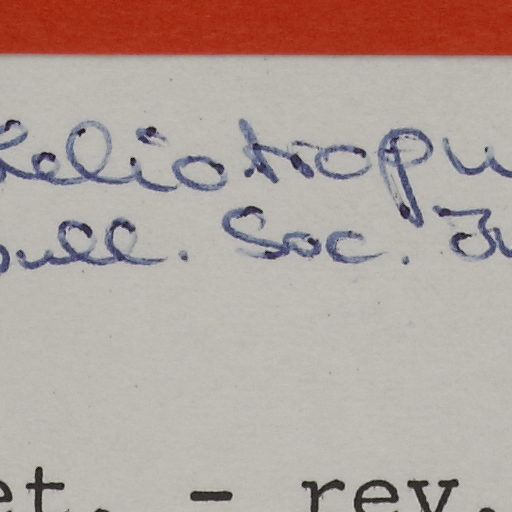 Heliotropu
Bull. Soc.
et. - rev.